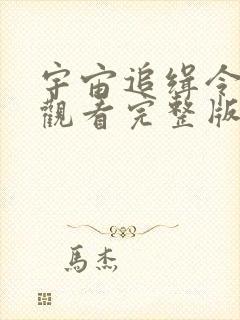 宇宙追缉令
觀看完整版
馬杰